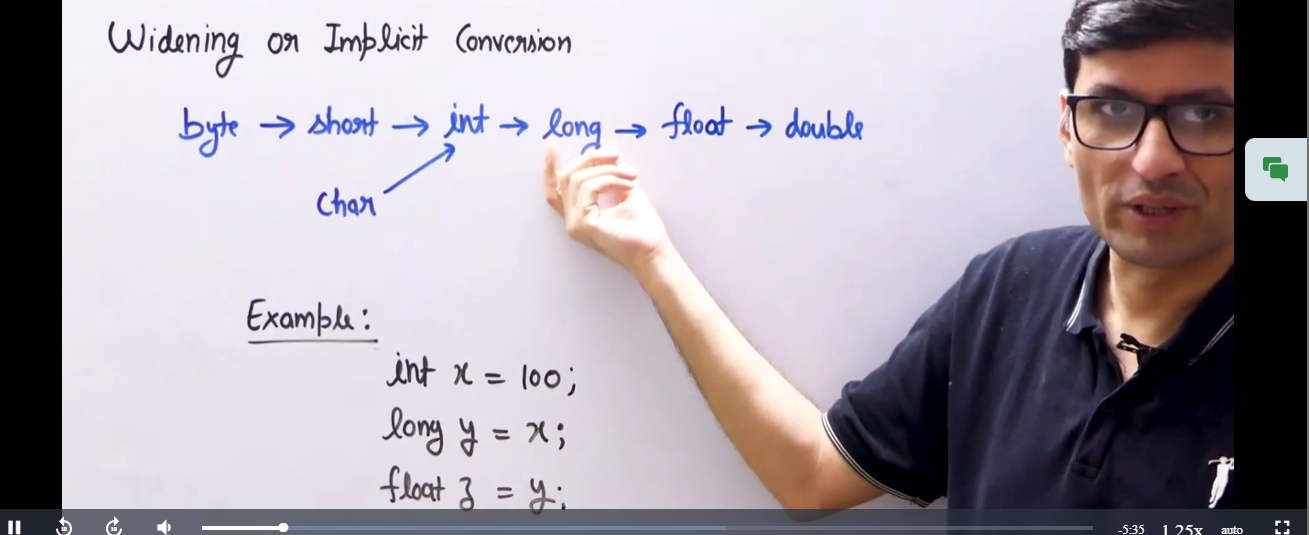 Widening or Implicit Conversion
byte → short → int → long → float → double
char
Example:
int x = 100;
long y = x;
float z = y;
-5:35 1.25x auto